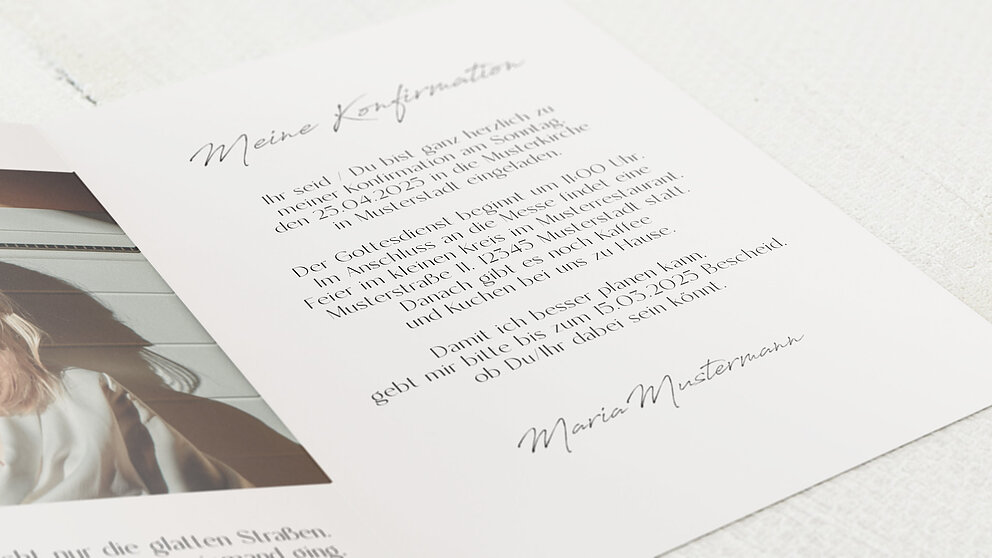 Meine Konfirmation
Ihr seid / Du bist ganz herzlich zu
meiner Konfirmation am Sonntag,
den 25.04.2025 in die Musterkirche
in Musterstadt eingeladen.
Der Gottesdienst beginnt um 11:00 Uhr.
Im Anschluss an die Messe findet eine
Feier im kleinen Kreis im Musterrestaurant,
Musterstraße 11, 12345 Musterstadt statt.
Danach gibt es noch Kaffee
und Kuchen bei uns zu Hause.
Damit ich besser planen kann,
gebt mir bitte bis zum 15.03.2025 Bescheid,
ob Du/Ihr dabei sein könnt.
Maria Mustermann
nur die glatten Straßen.
ging,